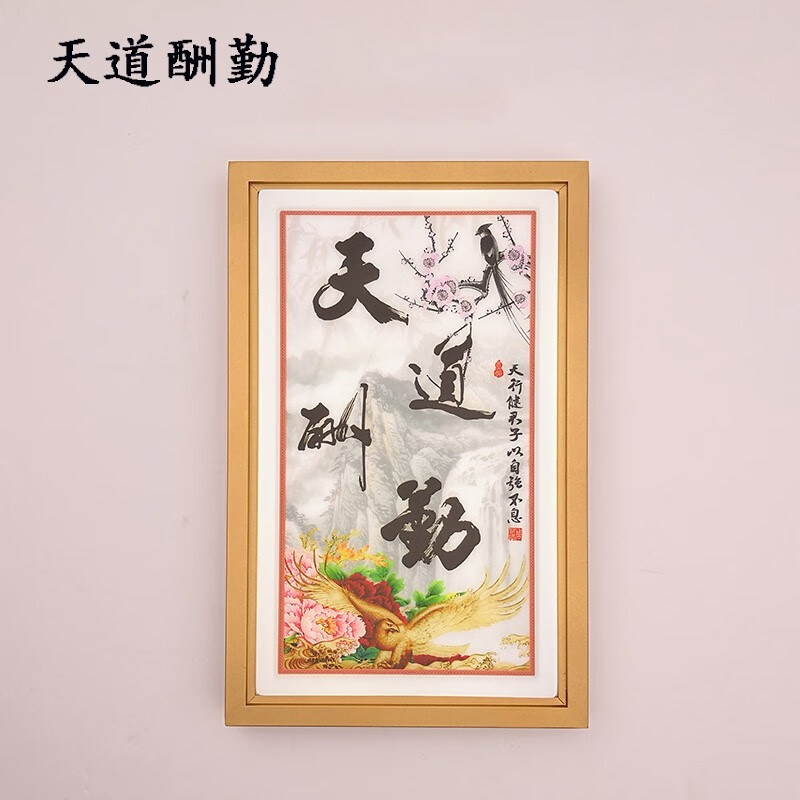 天道酬勤
天道酬勤
天行健君子以自强不息